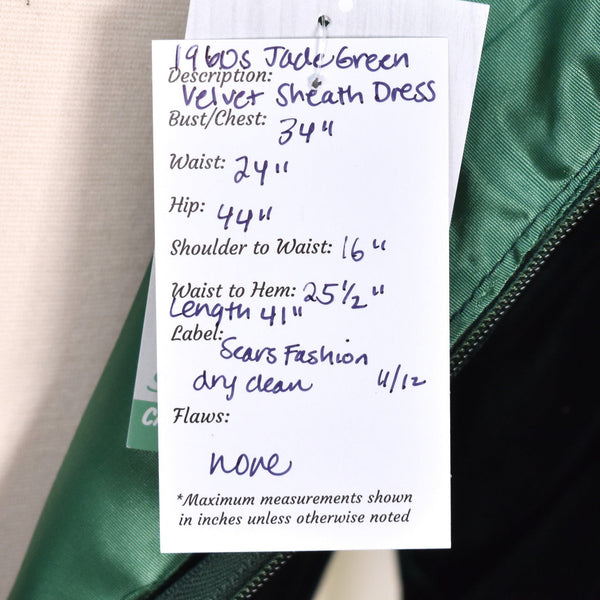 1960s Jade Green
Description:
Velvet Sheath Dress
Bust/Chest: 34"
Waist: 24"
Hip: 44"
Shoulder to Waist: 16"
Waist to Hem: 25 1/2"
Length 41"
Label:
Sears Fashion
dry clean 4/12
Flaws:
none
*Maximum measurements shown
in inches unless otherwise noted